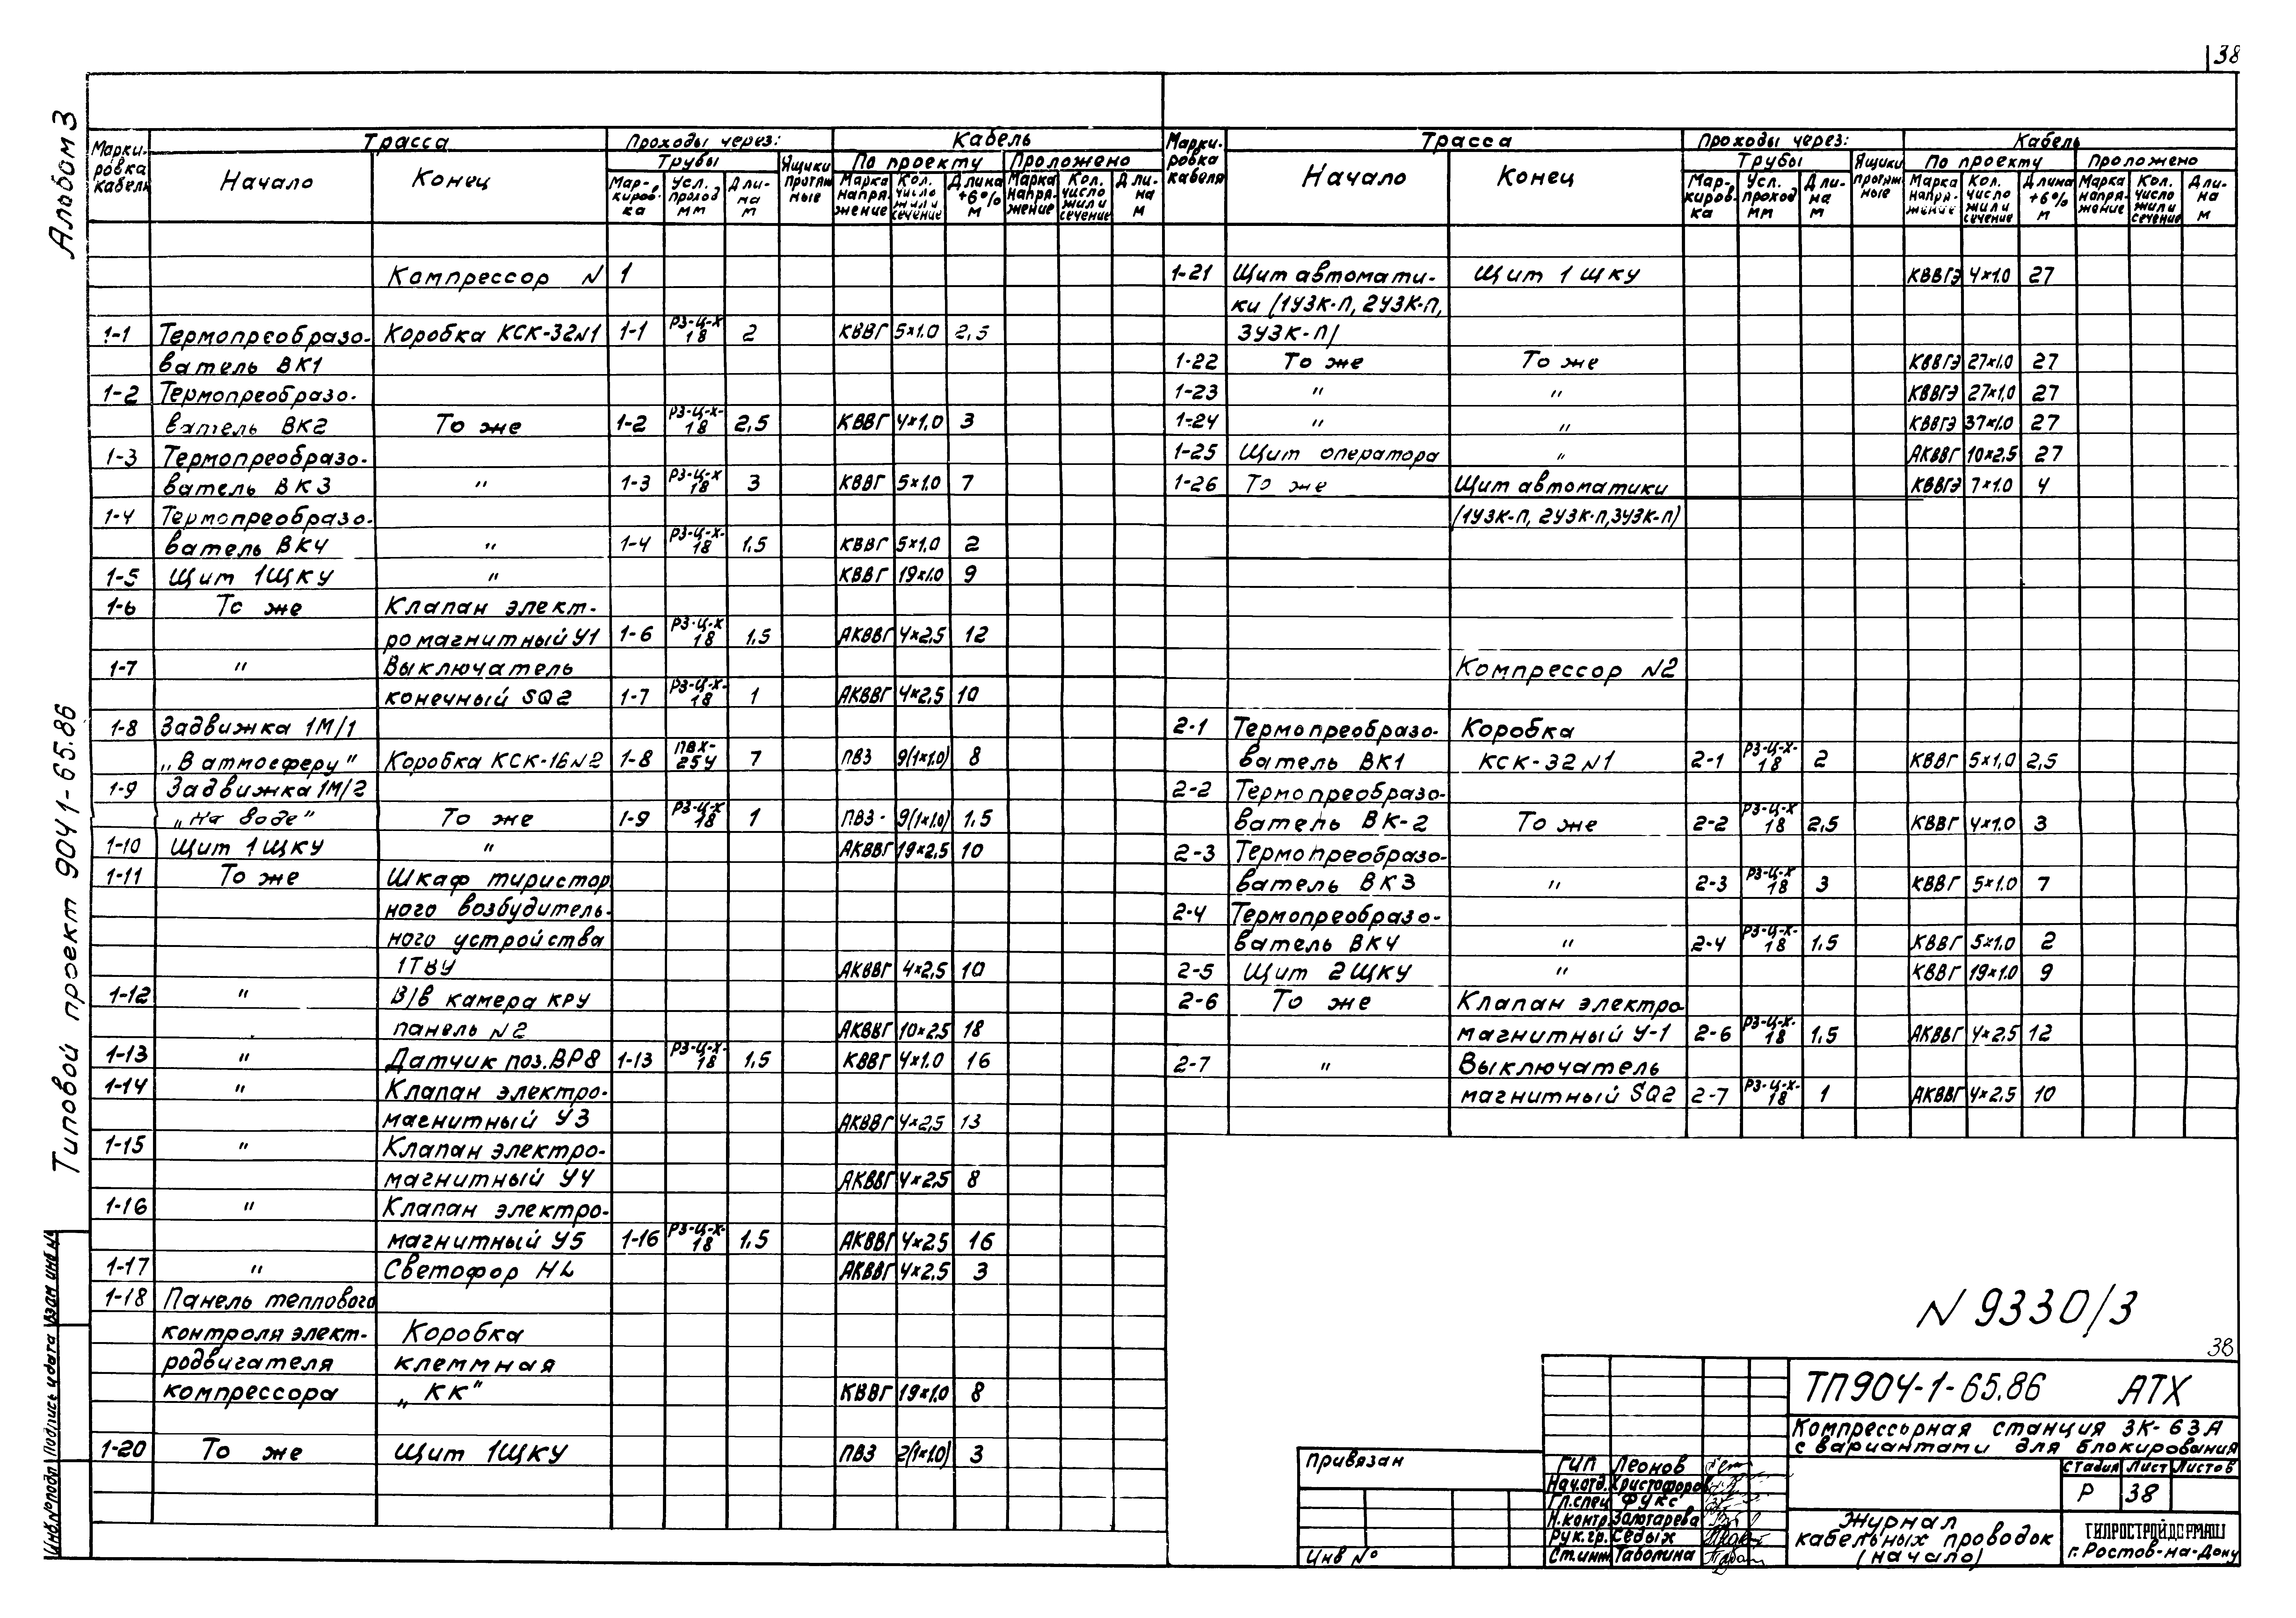 38
Альбом 3
Типовой проект 904 1-65.86
Марки-ровка кабеля | Трасса | Проходы через: | Кабель
Начало | Конец | Трубы | Ящики протяж ные | По проекту | Проложено
Мар-киров-ка | Усл. проход мм | Дли-на м | Марка напря-жение | Кол. число жил и сечение | Длина +6% м | Марка напря-жение | Кол. число жил и сечение | Дли-на м
Компрессор N 1
1-1 Термопреобразо- Коробка КСК-32N1 1-1 РЗ-Ц-Х 18 2 КВВГ 5×1.0 2,5
ватель ВК1
1-2 Термопреобразо-
ватель ВК2 То же 1-2 РЗ-Ц-Х- 18 2,5 КВВГ 4×1,0 3
1-3 Термопреобразо-
ватель ВК3 " 1-3 РЗ-Ц-Х 18 3 КВВГ 5×1.0 7
1-4 Термопреобразо-
ватель ВК4 " 1-4 РЗ-Ц-Х- 18 1,5 КВВГ 5×1,0 2
1-5 Щит 1ЩКУ " КВВГ 19×1.0 9
1-6 То же Клапан элект-
ромагнитный У1 1-6 РЗ-Ц-Х 18 1,5 АКВВГ 4×2,5 12
1-7 " Выключатель
конечный SQ2 1-7 РЗ-Ц-Х- 18 1 АКВВГ 4×2,5 10
1-8 Задвижка 1М/1
„В атмосферу" Коробка КСК-16N2 1-8 ПВХ- 25У 7 ПВ3 9(1×1.0) 8
1-9 Задвижка 1М/2
„На воде" То же 1-9 РЗ-Ц-Х 18 1 ПВ3 - 9(1×1.0) 1,5
1-10 Щит 1 ЩКУ " АКВВГ 19×2,5 10
1-11 То же Шкаф тиристор
ного возбудитель-
ного устройства
1ТВУ АКВВГ 4×2,5 10
1-12 " В/в камера КРУ
панель N2 АКВВГ 10×2.5 18
1-13 " Датчик поз.ВР8 1-13 РЗ-Ц-Х- 18 1,5 КВВГ 4×1.0 16
1-14 " Клапан электро-
магнитный У3 АКВВГ 4×2,5 13
1-15 " Клапан электро-
магнитный У4 АКВВГ 4×2,5 8
1-16 " Клапан электро-
магнитный У5 1-16 РЗ-Ц-Х- 18 1,5 АКВВГ 4×2.5 16
1-17 " Светофор HL АКВВГ 4×2,5 3
1-18 Панель теплового
контроля элект- Коробка
родвигателя клеммная
компрессора „КК" КВВГ 19×1.0 8
1-20 То же Щит 1ЩКУ ПВ3 2(1×1.0) 3
Марки-ровка кабеля | Трасса | Проходы через: | Кабель
Начало | Конец | Трубы | Ящики протяж ные | По проекту | Проложено
Мар-киров-ка | Усл. проход мм | Дли-на м | Марка напря-жение | Кол. число жил и сечение | Длина +6% м | Марка напря-жение | Кол. число жил и сечение | Дли-на м
1-21 Щит автомати- Щит 1 ЩКУ КВВГЭ 4×1.0 27
ки (1УЗК-П, 2УЗК-П,
3УЗК-П)
1-22 То же То же КВВГЭ 27×1.0 27
1-23 " " КВВГЭ 27×1,0 27
1-24 " " КВВГЭ 37×1.0 27
1-25 Щит оператора " АКВВГ 10×2,5 27
1-26 То же Щит автоматики КВВГЭ 7×1.0 4
(1УЗК-П, 2УЗК-П, 3УЗК-П)
Компрессор N2
2-1 Термопреобразо- Коробка
ватель ВК1 КСК-32 N1 2-1 РЗ-Ц-Х- 18 2 КВВГ 5×1,0 2,5
2-2 Термопреобразо-
ватель ВК-2 То же 2-2 РЗ-Ц-Х 18 2,5 КВВГ 4×1.0 3
2-3 Термопреобразо-
ватель ВК3 " 2-3 РЗ-Ц-Х 18 3 КВВГ 5×1.0 7
2-4 Термопреобразо-
ватель ВК4 " 2-4 РЗ-Ц-Х- 18 1,5 КВВГ 5×1.0 2
2-5 Щит 2 ЩКУ " КВВГ 19×1.0 9
2-6 То же Клапан электро
магнитный У-1 2-6 РЗ-Ц-Х- 18 1,5 АКВВГ 4×2,5 12
2-7 " Выключатель
магнитный SQ2 2-7 РЗ-Ц-Х- 18 1 АКВВГ 4×2,5 10
N 9330/3
38
ТП904-1-65.86 АТХ
Компрессорная станция 3К-63А
с вариантами для блокирования
Стадия Лист Листов
Р 38
Журнал
кабельных проводок
(начало)
ГИПРОСТРОЙДОРМАШ
г. Ростов-на-Дону
ГИП Леонов
Нач.отд. Христофоров
Гл.спец Фукс
Н.контр. Золотарева
Рук.гр. Седых
Ст.инж Таботина
Привязан
Инв N°
Инв.№подл Подпись и дата Взам инв №